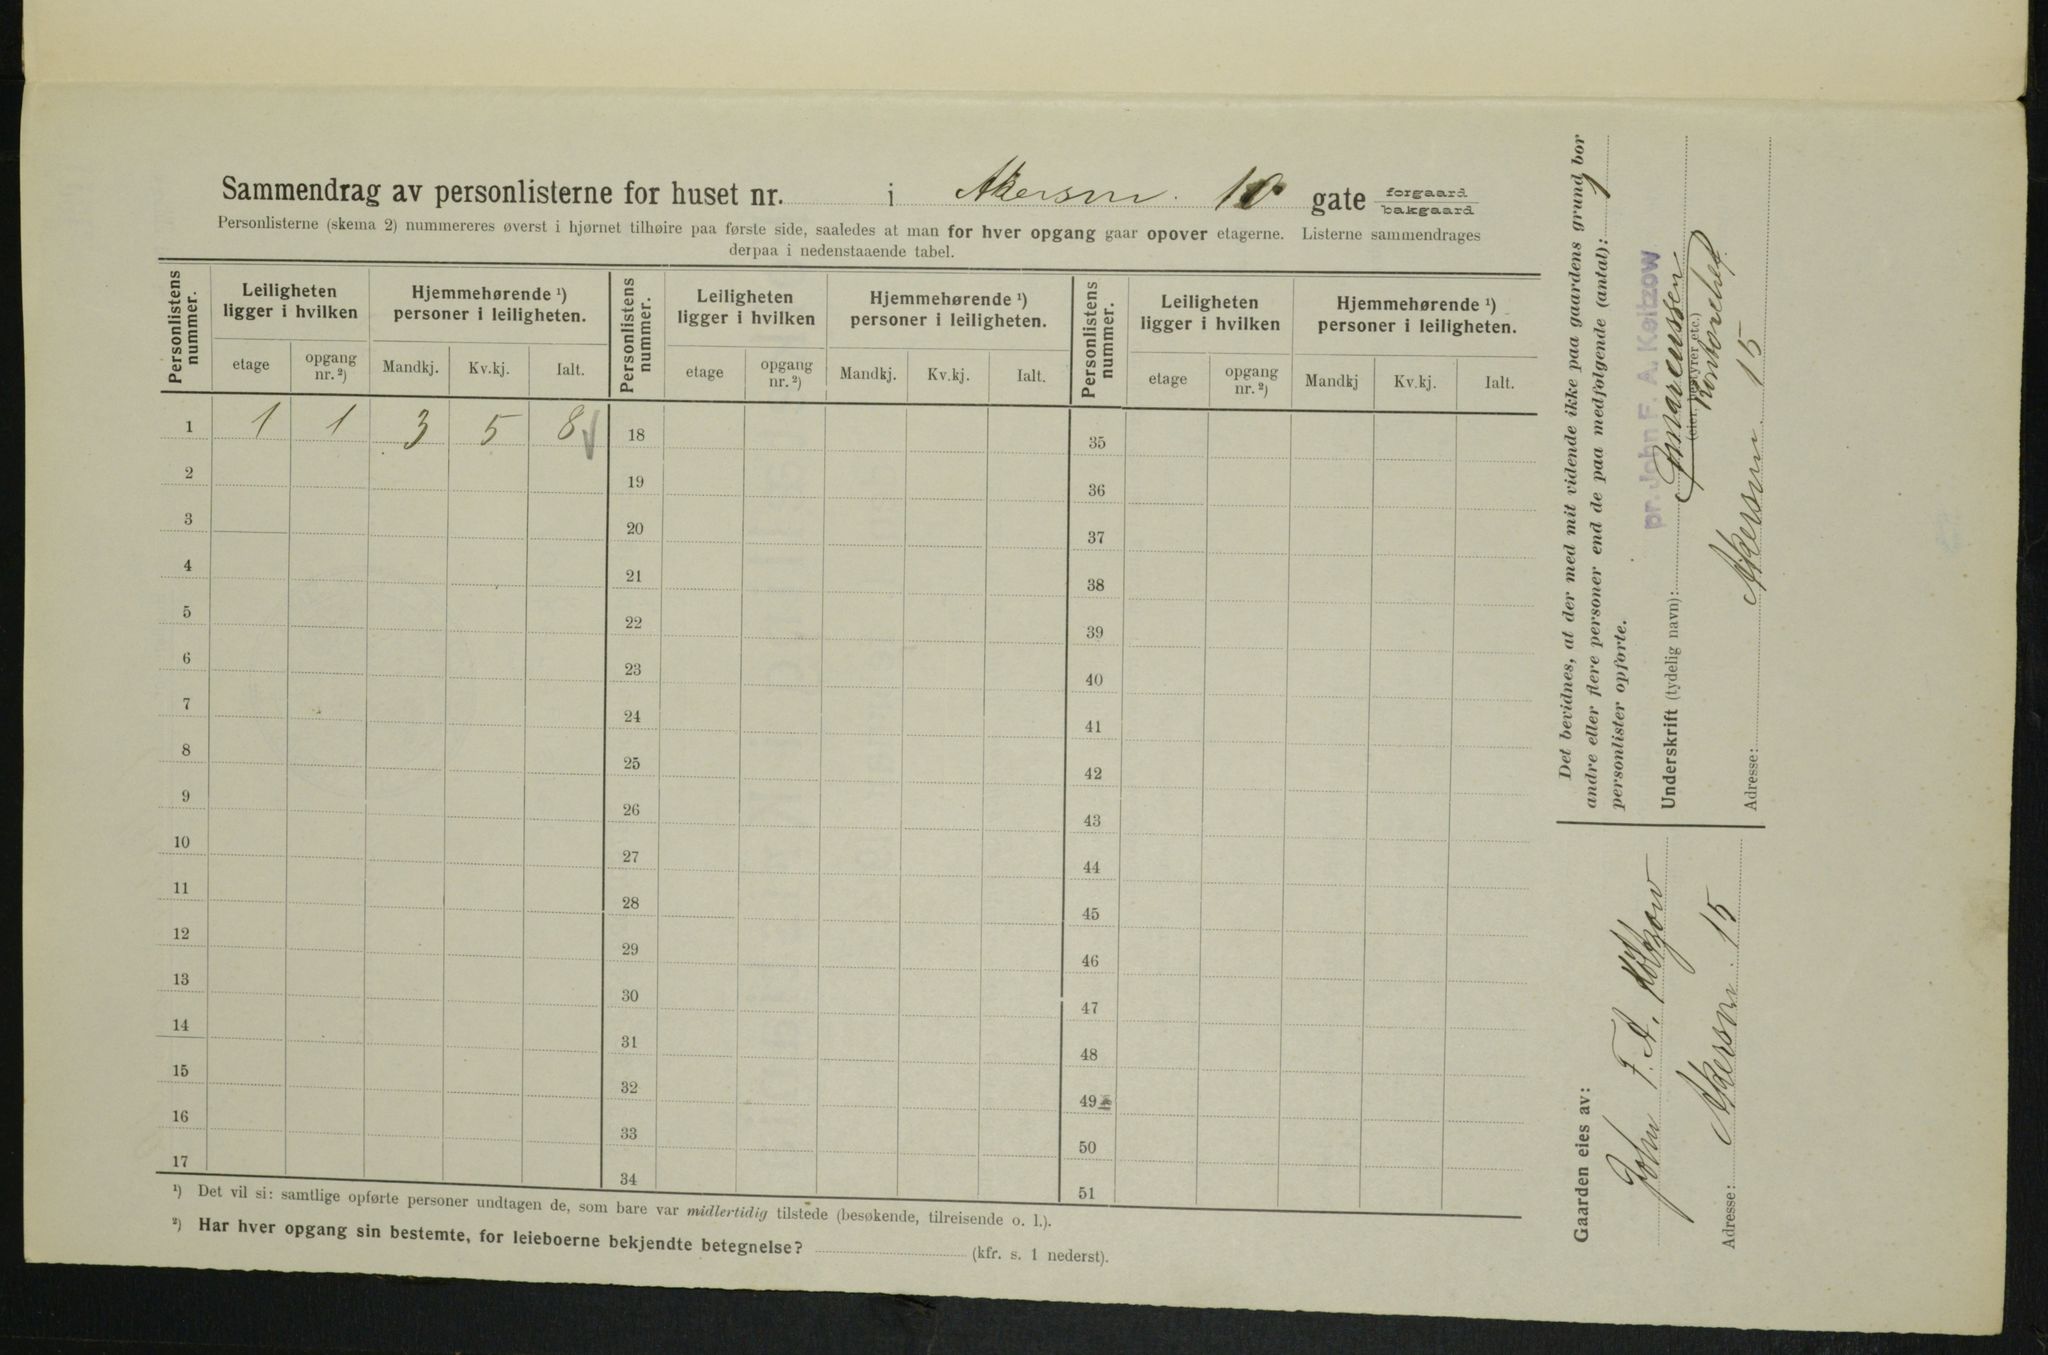 Sammendrag av personlisterne for huset nr. i Akersvn. 10 gate forgaard bakgaard
Personlisterne (skema 2) nummereres øverst i hjørnet tilhøire paa første side, saaledes at man for hver opgang gaar opover etagerne. Listerne sammendrages
derpaa i nedenstaaende tabel.
Personlistens nummer. Leiligheten ligger i hvilken Hjemmehørende ¹) personer i leiligheten. Personlistens nummer. Leiligheten ligger i hvilken Hjemmehørende ¹) personer i leiligheten. Personlistens nummer. Leiligheten ligger i hvilken Hjemmehørende ¹) personer i leiligheten.
etage opgang nr. ²) Mandkj. Kv.kj. Ialt. etage opgang nr. ²) Mandkj. Kv.kj. Ialt. etage opgang nr. ²) Mandkj Kv.kj. Ialt.
1 1 1 3 5 8 18 35
2 19 36
3 20 37
4 21 38
5 22 39
6 23 40
7 24 41
8 25 42
9 26 43
10 27 44
11 28 45
12 29 46
13 30 47
14 31 48
15 32 49
16 33 50
17 34 51
¹) Det vil si: samtlige opførte personer undtagen de, som bare var midlertidig tilstede (besøkende, tilreisende o. l.).
²) Har hver opgang sin bestemte, for leieboerne bekjendte betegnelse? (kfr. s. 1 nederst).
Det bevidnes, at der med mit vidende ikke paa gaardens grund bor
andre eller flere personer end de paa medfølgende (antal): 1
personlister opførte.
pr. John F. A. Keitzow
Underskrift (tydelig navn):
(eier, bestyrer etc.)
Kontorchef.
Adresse: Akersvn. 15
Gaarden eies av:
John F. A. Költzow
Adresse: Akersvn. 15